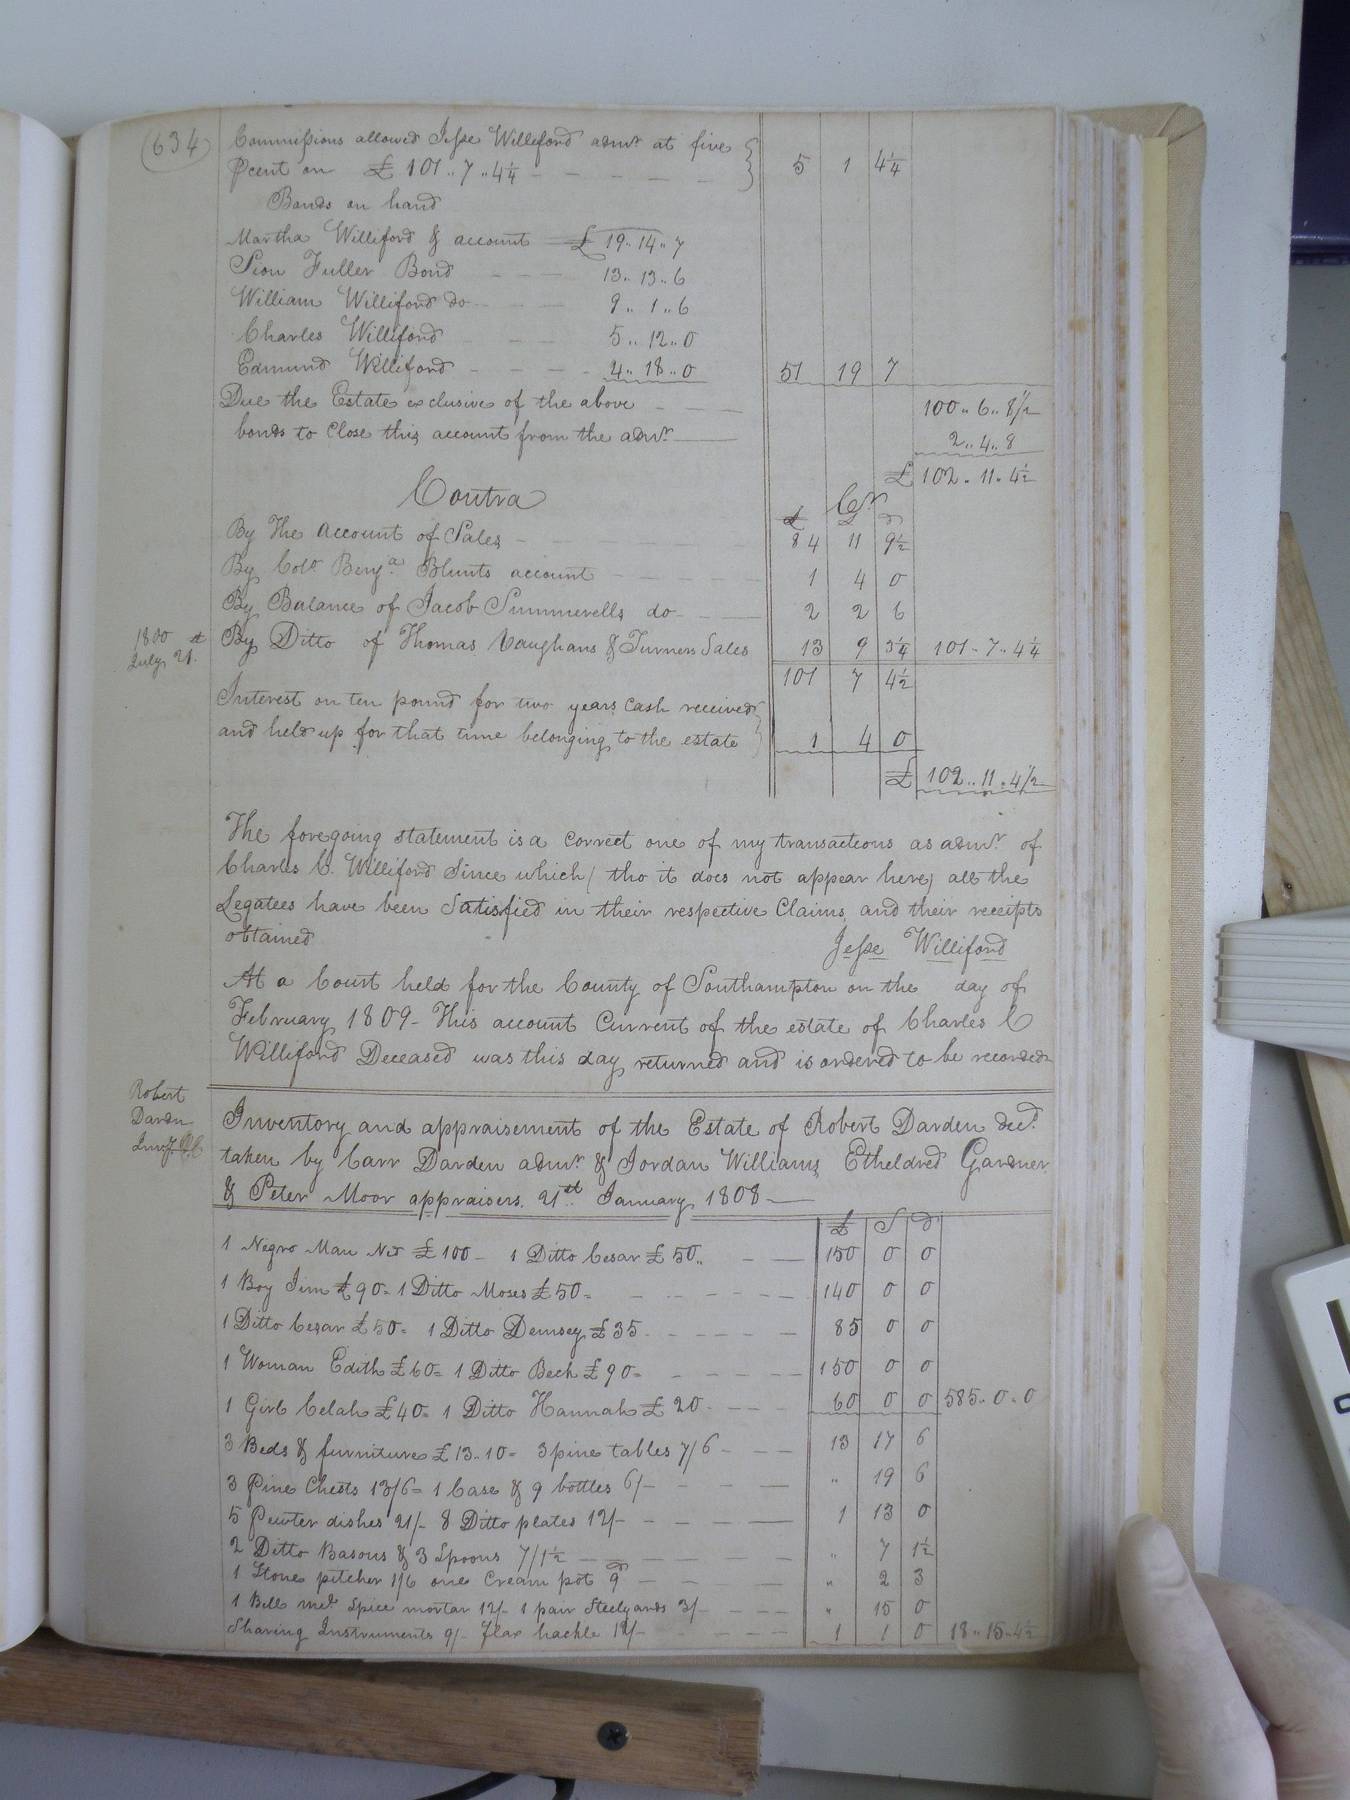 (634)
Commissions allowed Jesse Williford admr. at five
Pcent on £ 101..7..4¼ 5 1 4¼
Bonds on hand
Martha Williford & account £ 19..14..7
Sion Fuller Bond 13..13..6
William Williford do 9..1..6
Charles Williford 5..12..0
Edmund Williford 4..18..0 51 19 7
Due the Estate exclusive of the above 100..6..8½
bonds to Close this account from the admr. 2..4..8
£ 102..11..4½
Contra Cr.
£ S D
By The account of Sales 84 11 9½
By Colo. Benja. Blunts account 1 4 0
By Balance of Jacob Summerells do 2 2 6
1800 July 21st By Ditto of Thomas Vaughans & Turners Sales 13 9 3¼ 101..7..4¼
101 7 4½
Interest on ten pound for two years cash received
and held up for that time belonging to the estate 1 4 0
£ 102..11..4½
The foregoing statement is a correct one of my transactions as admr. of
Charles C. Williford Since which (tho it does not appear here) all the
Legatees have been Satisfied in their respective Claims, and their receipts
obtained Jesse Williford
At a Court held for the County of Southampton on the day of
February 1809 - This account Current of the estate of Charles C
Williford Deceased was this day returned and is ordered to be recorded
Robert
Darden
Inventory and appraisement of the Estate of Robert Darden decd.
taken by Carr Darden admr. & Jordan Williams, Etheldred Gardner
& Peter Moor appraisers. 21st January 1808
£ S D
1 Negro Man Ned £100 - 1 Ditto Cesar £50.. 150 0 0
1 Boy Jim £90= 1 Ditto Moses £50= 140 0 0
1 Ditto Cesar £50= 1 Ditto Demsey £35 85 0 0
1 Woman Edith £60= 1 Ditto Beck £90= 150 0 0
1 Girl Celah £40= 1 Ditto Hannah £20 60 0 0 585..0..0
3 Beds & furniture £13..10= 3 pine tables 7/6 13 17 6
3 Pine Chests 13/6= 1 Case & 9 bottles 6/- " 19 6
5 Pewter dishes 21/- 8 Ditto plates 12/- 1 13 0
2 Ditto Basons & 3 Spoons 7/1½ " 7 1½
1 Stone pitcher 1/6 one Cream pot 9d " 2 3
1 Bell met. Spice mortar 12/- 1 pair Steelyards 3/- " 15 0
Shaving Instruments 9/- flax hackle 12/- 1 1 0 18..15..4½